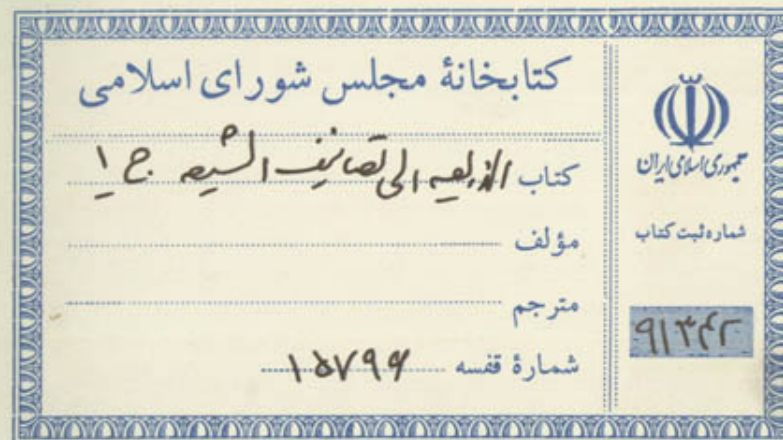 کتابخانهٔ مجلس شورای اسلامی
کتاب الذریعه الی تصانیف الشیعه ج ۱
مؤلف
مترجم
شمارهٔ قفسه ۱۵۷۹۶
جمهوری اسلامی ایران
شماره ثبت کتاب
۹۱۳۴۲